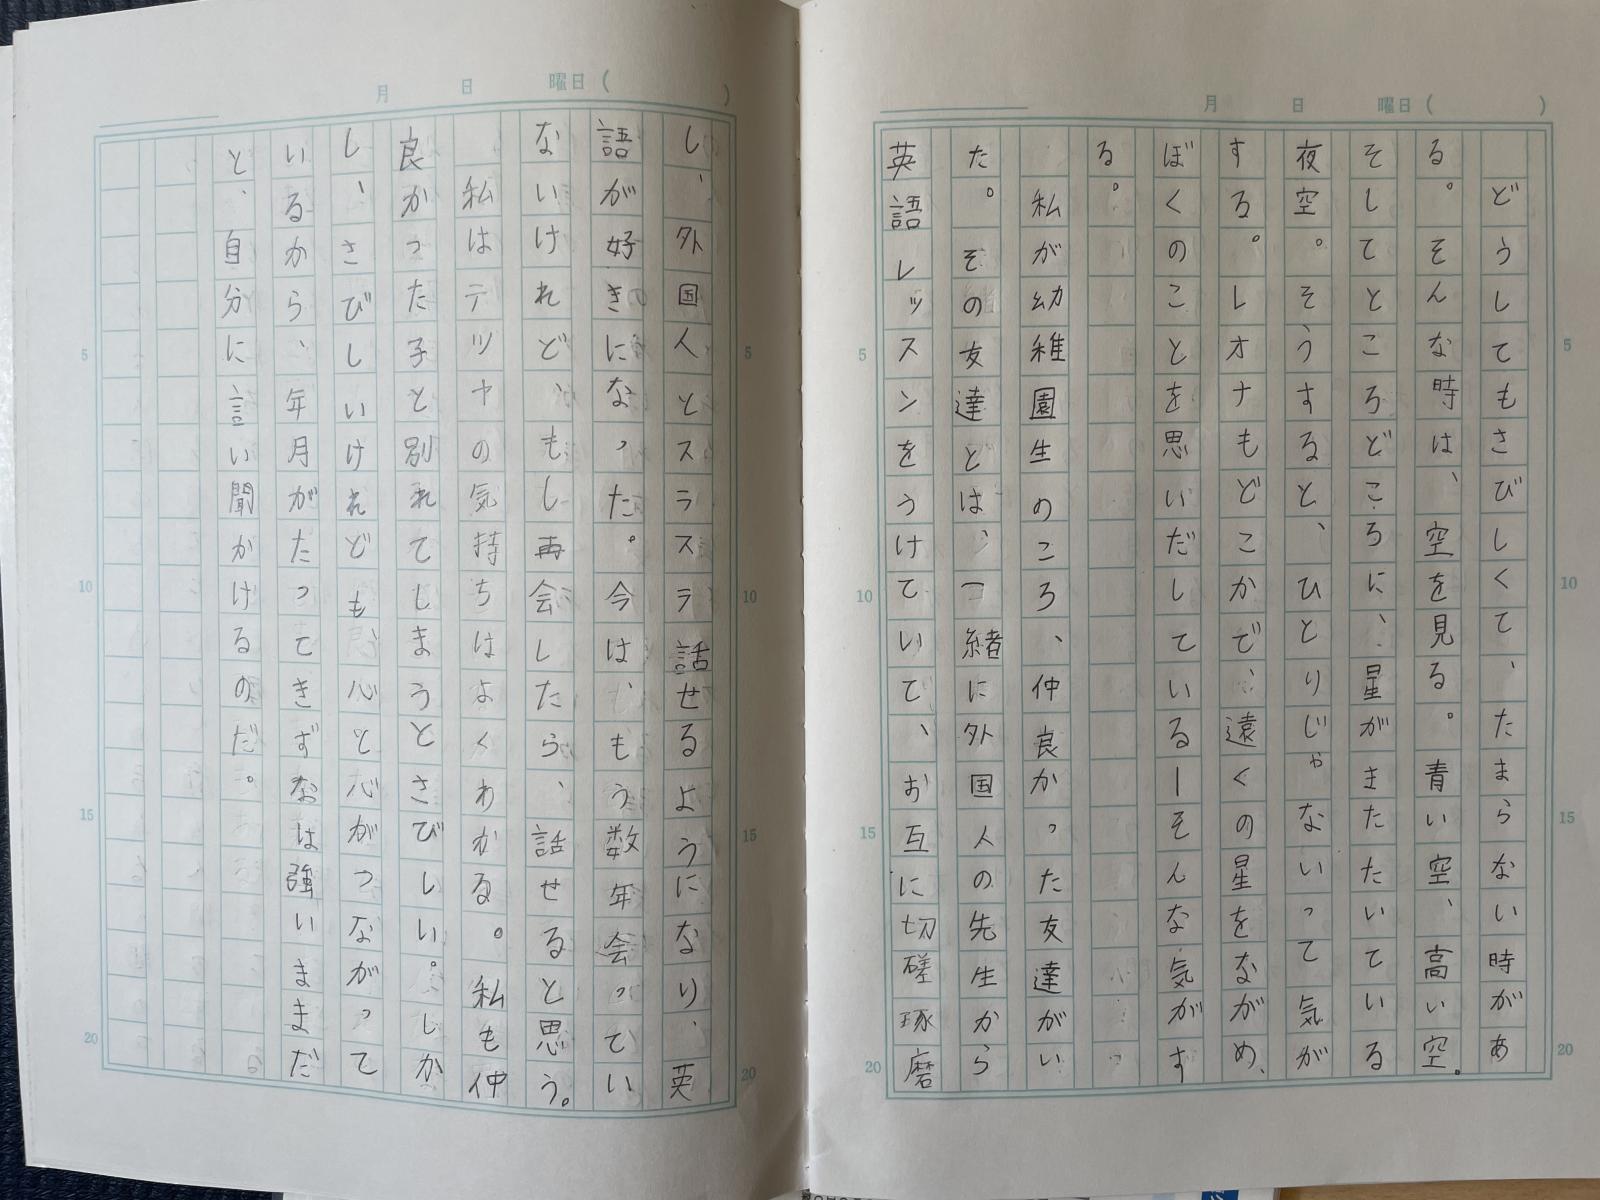 月　日　曜日（　）
どうしてもさびしくて、たまらない時があ
る。そんな時は、空を見る。青い空、高い空。
そしてところどころに、星がまたたいている
夜空。そうすると、ひとりじゃないって気が
する。レオナもどこかで、遠くの星をながめ、
ぼくのことを思いだしているーそんな気がす
る。
私が幼稚園生のころ、仲良かった友達がい
た。その友達とは、一緒に外国人の先生から
英語レッスンをうけていて、お互に切磋琢磨
5
10
15
20
5
10
15
20
月　日　曜日（　）
し、外国人とスラスラ話せるようになり、英
語が好きになった。今は、もう数年会ってい
ないけれど、もし再会したら、話せると思う。
私はテツヤの気持ちはよくわかる。私も仲
良かった子と別れてしまうとさびしい。しか
し、さびしいけれども、心と心がつながって
いるから、年月がたってきずなは強いままだ
と、自分に言い聞かけるのだ。
5
10
15
20
5
10
15
20